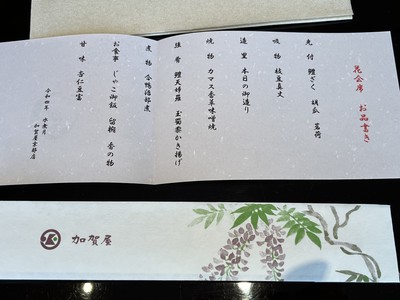 花会席　お品書き
先付　鱧ざく　胡瓜　茗荷
吸物　枝豆真丈
造里　本日の御造り
焼物　カマス香草味噌焼
強肴　鱧天婦羅　玉蜀黍かき揚げ
煮物　合鴨治部煮
お食事　じゃこ御飯　留椀　香の物
甘味　杏仁豆富
令和四年　水無月
加賀屋京都店
加賀屋